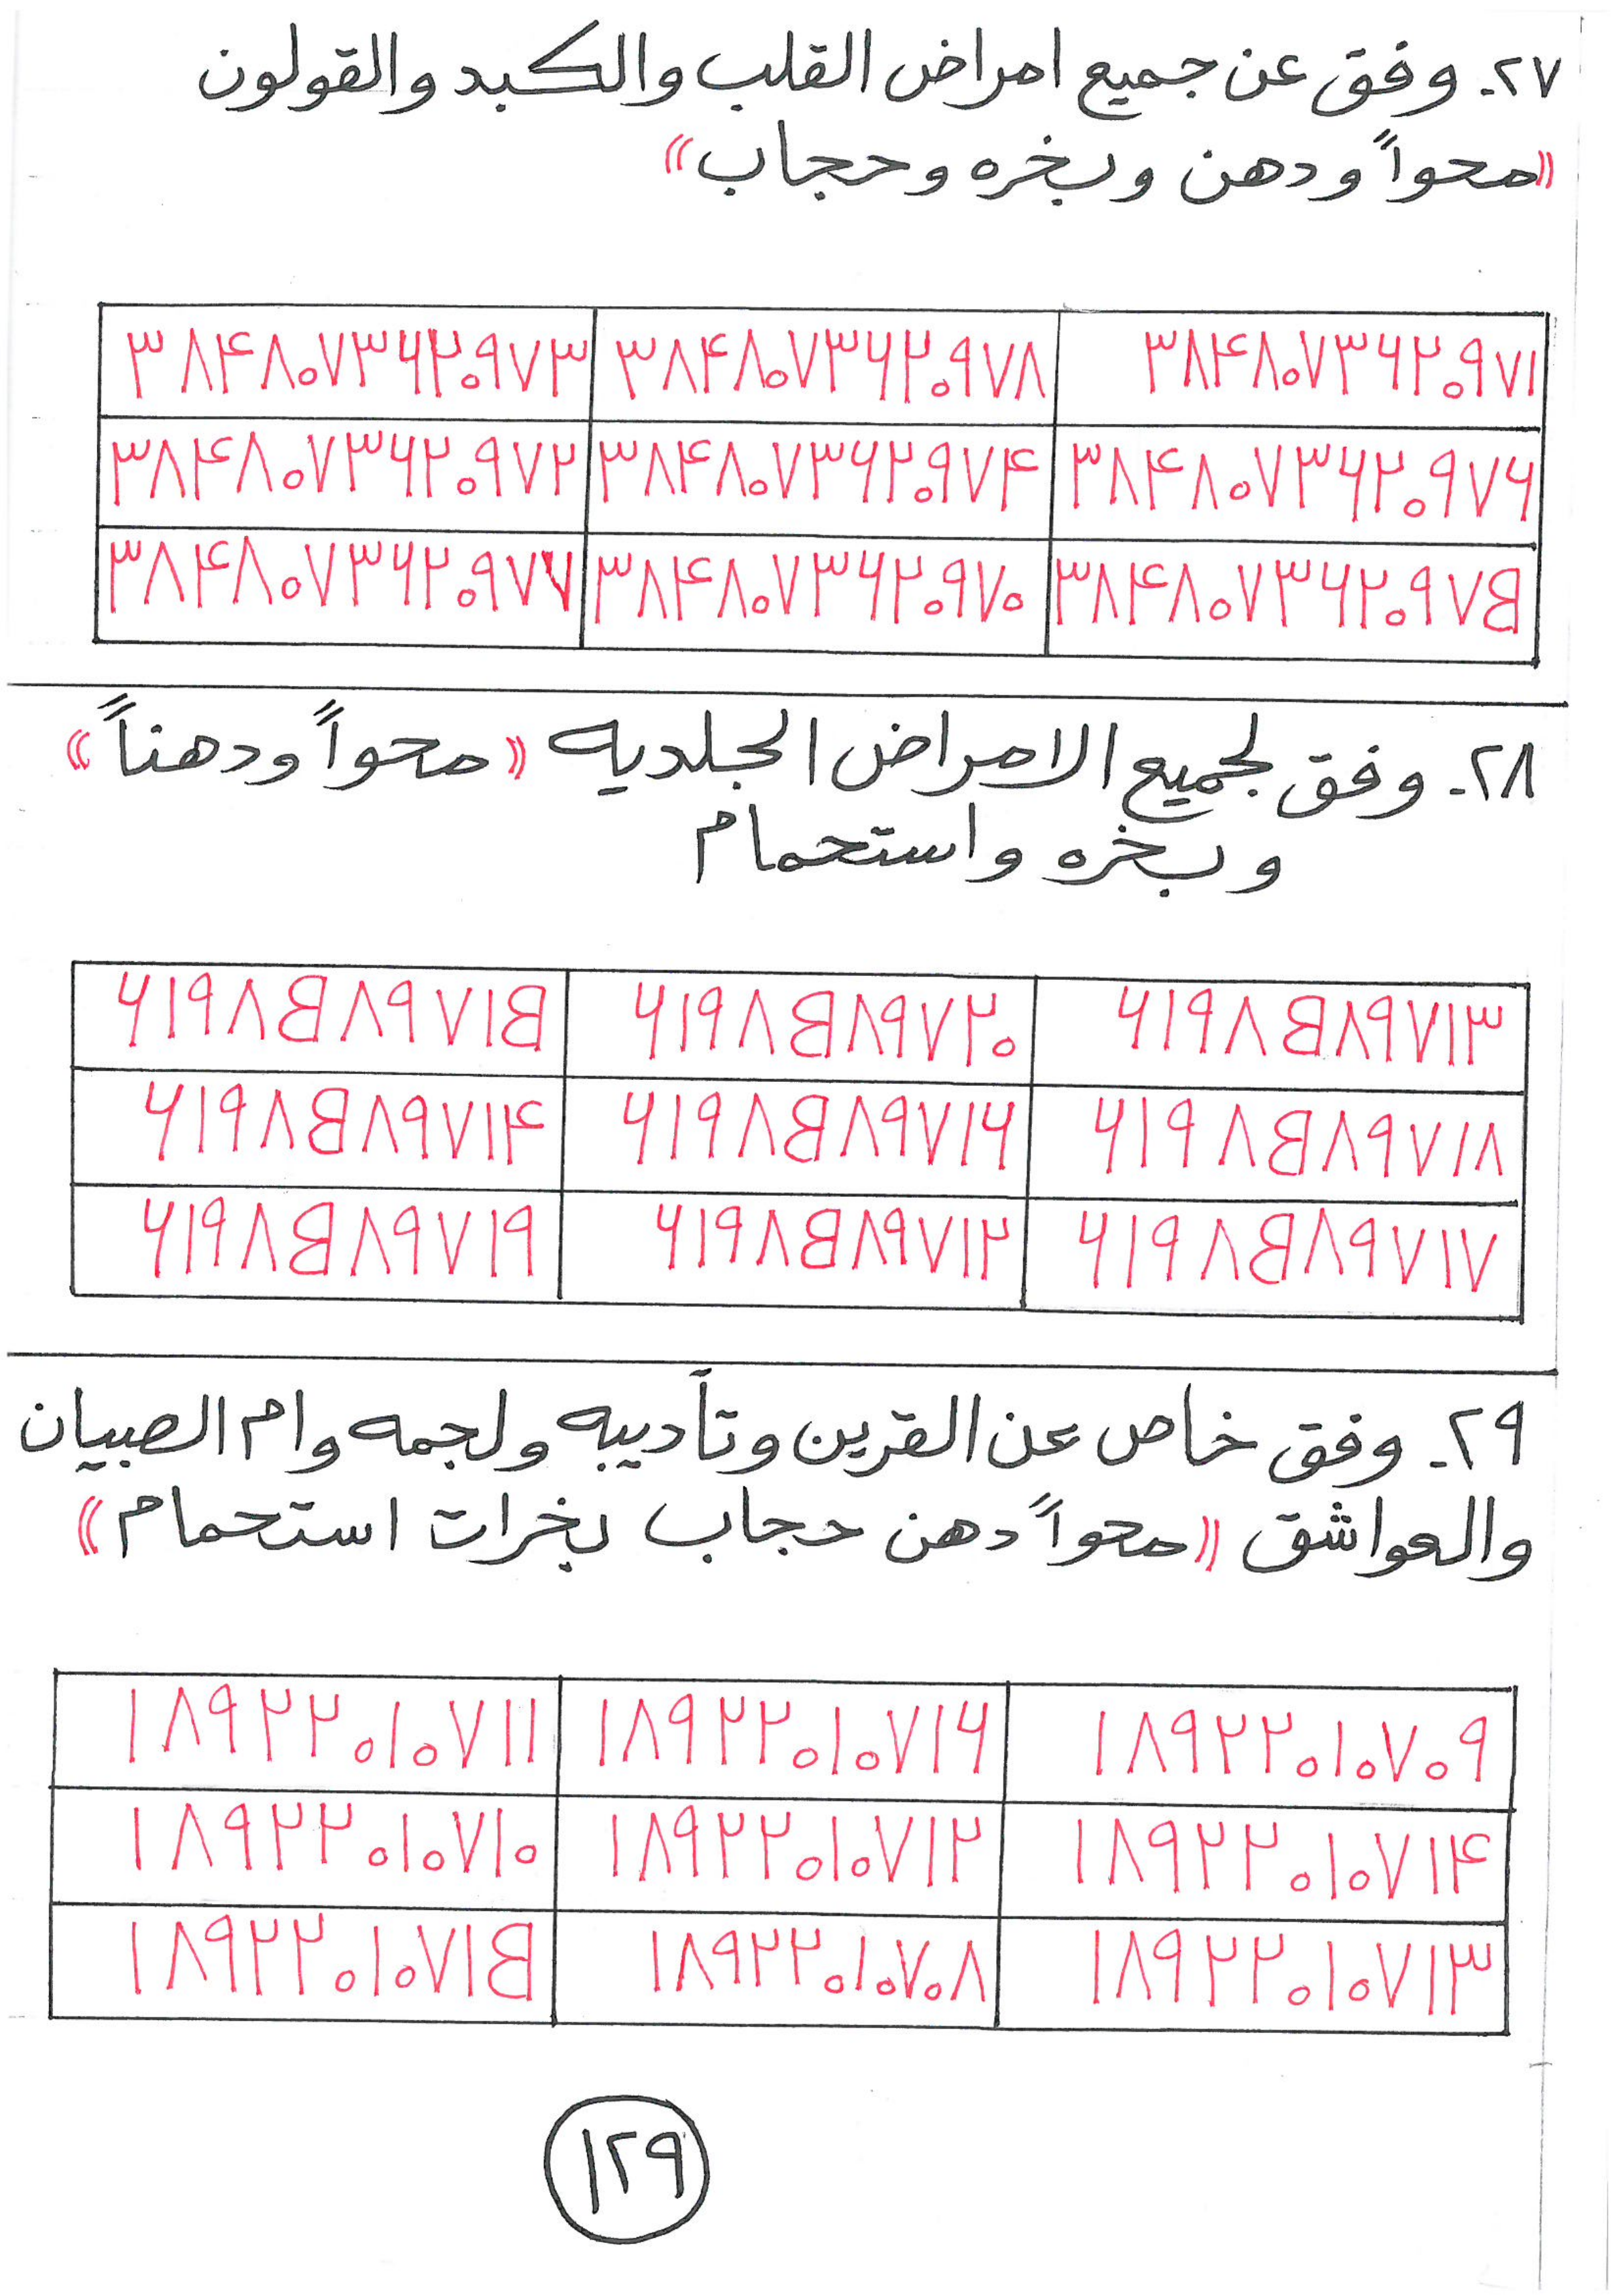 ٢٧- وفق عن جميع امراض القلب والكبد والقولون
((محواً ودهن وبخره وحجاب))
٣٨۴٨٠٧٣۶٢٠٩٧٣ ٣٨۴٨٠٧٣۶٢٠٩٧٨ ٣٨۴٨٠٧٣۶٢٠٩٧١
٣٨۴٨٠٧٣۶٢٠٩٧٢ ٣٨۴٨٠٧٣۶٢٠٩٧۴ ٣٨۴٨٠٧٣۶٢٠٩٧۶
٣٨۴٨٠٧٣۶٢٠٩٧٧ ٣٨۴٨٠٧٣۶٢٠٩٧٠ ٣٨۴٨٠٧٣۶٢٠٩٧B
٢٨- وفق لجميع الامراض الجلديه ((محواً ودهناً))
وبخره واستحمام
۶١٩٨B٨٩٧١B ۶١٩٨B٨٩٧٢٠ ۶١٩٨B٨٩٧١٣
۶١٩٨B٨٩٧١۴ ۶١٩٨B٨٩٧١۶ ۶١٩٨B٨٩٧١٨
۶١٩٨B٨٩٧١٩ ۶١٩٨B٨٩٧١٢ ۶١٩٨B٨٩٧١٧
٢٩- وفق خاص عن القرين وتأديبه ولجمه وام الصبيان
والعواشق ((محواً دهن حجاب بخرات استحمام))
١٨٩٢٢٠١٠٧١١ ١٨٩٢٢٠١٠٧١۶ ١٨٩٢٢٠١٠٧٠٩
١٨٩٢٢٠١٠٧١٠ ١٨٩٢٢٠١٠٧١٢ ١٨٩٢٢٠١٠٧١۴
١٨٩٢٢٠١٠٧١B ١٨٩٢٢٠١٠٧٠٨ ١٨٩٢٢٠١٠٧١٣
١٢٩